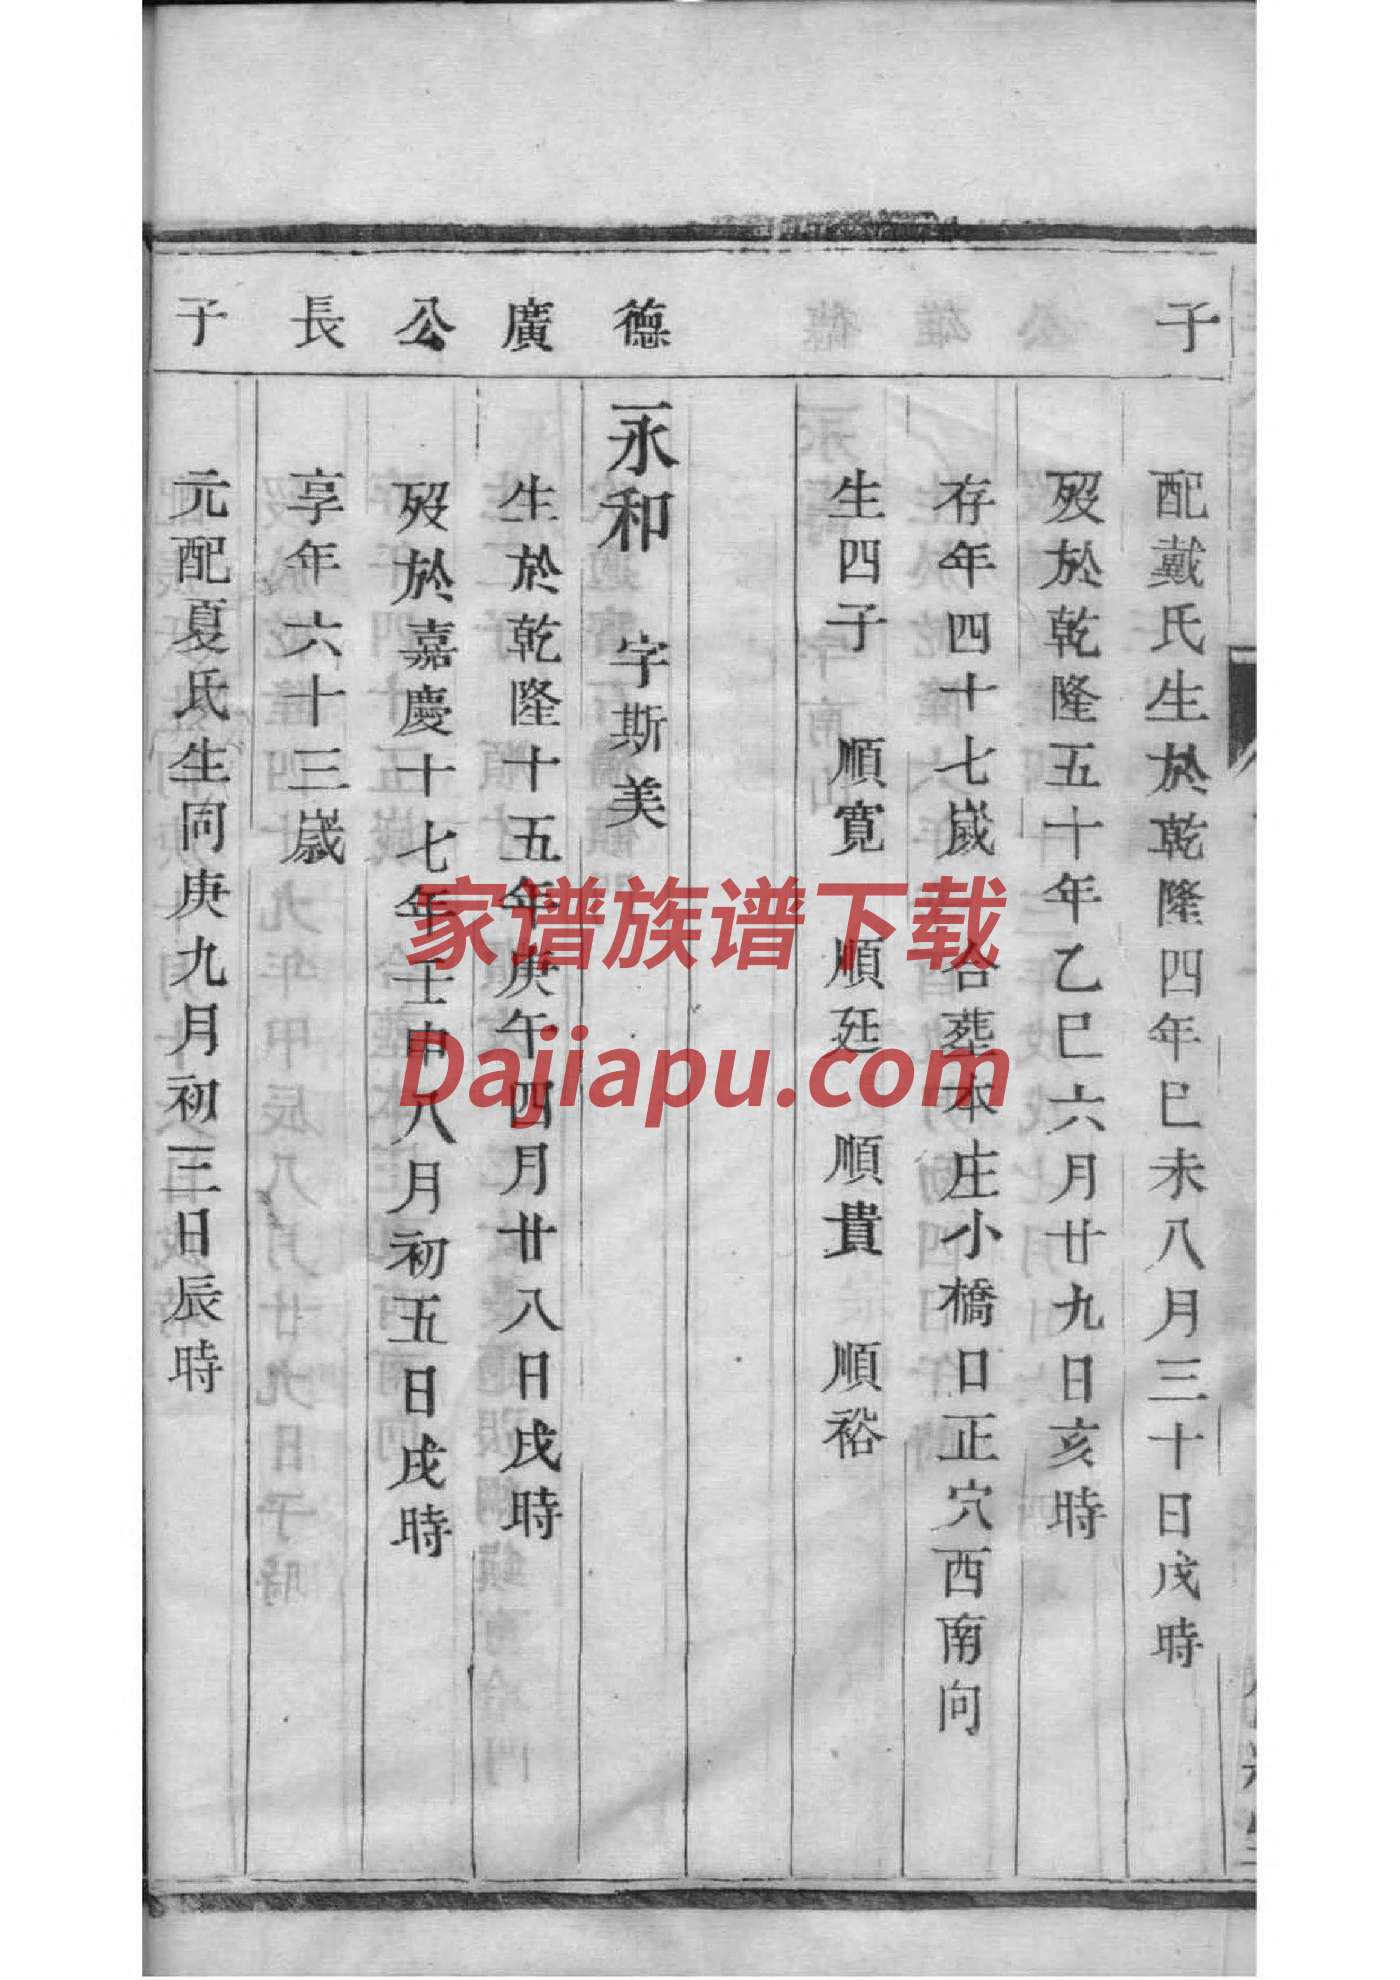 子
配戴氏生於乾隆四年巳未八月三十日戌時
歿於乾隆五十年乙巳六月廿九日亥時
存年四十七嵗 合葬本庄小橋口正穴西南向
生四子 順寛 順廷 順貴 順裕
德廣公長子
永和 字斯美
生於乾隆十五年庚午四月廿八日戌時
歿於嘉慶十七年壬申八月初五日戌時
享年六十三嵗
元配夏氏生同庚九月初三日辰時
家谱族谱下载
Dajiapu.com